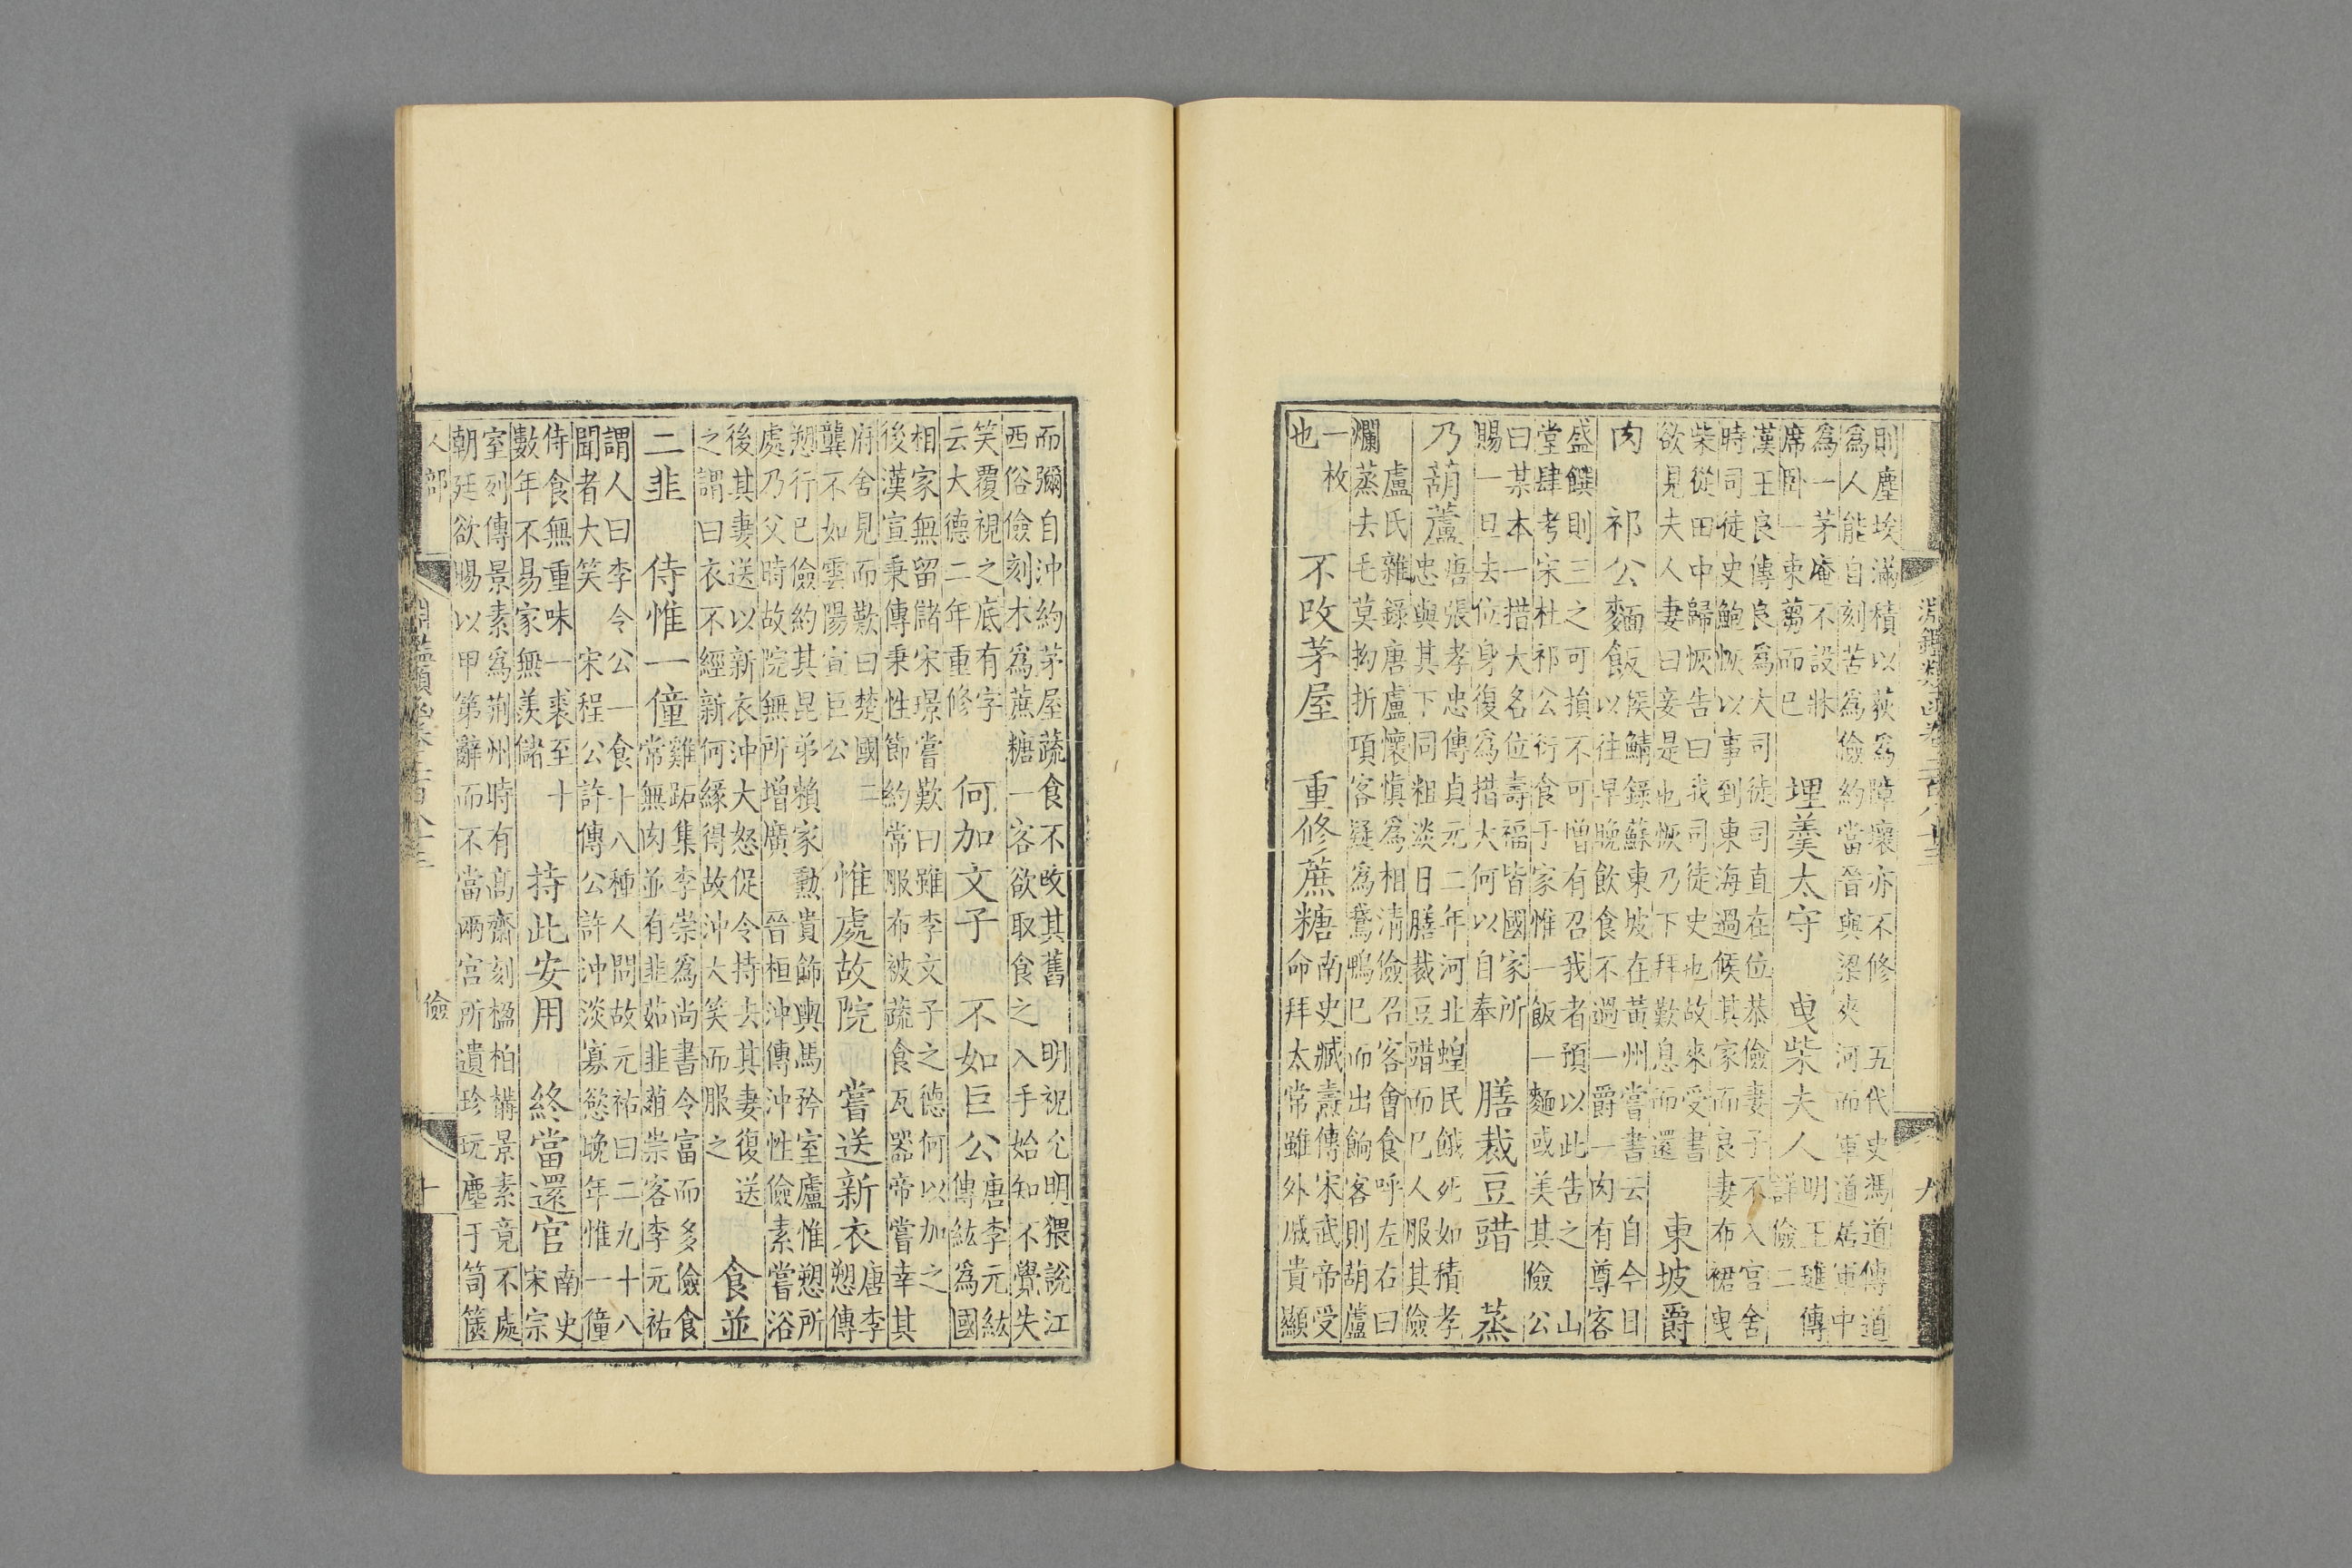 淵鑑類函卷二百八十三 九
則塵埃滿積以荻爲障壞亦不修 五代史馮道傳道
爲人能自刻苦爲儉約當晉與梁夾河而軍道居軍中
爲一茅庵不設牀
席卧一束蒭而已 埋羹太守 曳柴夫人 明王璡傳
詳儉二
漢王良傳良爲大司徒司直在位恭儉妻子不入官舍
時司徒史鮑恢以事到東海過候其家而良妻布裙曳
柴從田中歸恢告曰我司徒史也故來受書
欲見夫人妻曰妾是也恢乃下拜歎息而還 東坡爵
肉 祁公麵飯 侯鯖錄蘇東坡在黃州嘗書云自今日
以往早晚飲食不過一爵一肉有尊客
盛饌則三之可損不可增有召我者預以此告之 山
堂肆考宋杜祁公衍食于家惟一飯一麵或美其儉公
曰某本一措大名位壽福皆國家所
賜一旦去位身復爲措大何以自奉 膳裁豆䜺 蒸
乃葫蘆 唐張孝忠傳貞元二年河北蝗民餓死如積孝
忠與其下同粗淡日膳裁豆䜺而已人服其儉
盧氏雜錄唐盧懷慎爲相清儉召客會食呼左右曰
爛蒸去毛莫拗折項客疑爲鵞鴨已而出餉客則葫蘆
一枚
也 不改茅屋 重修蔗糖 南史臧燾傳宋武帝受
命拜太常雖外戚貴顯
而彌自沖約茅屋蔬食不改其舊 明祝允明猥說江
西俗儉刻木爲蔗糖一客欲取食之入手始知不覺失
笑覆視之底有字
云大德二年重修 何加文子 不如巨公 唐李元紘
傳紘爲國
相家無留儲宋璟嘗歎曰雖李文子之德何以加之
後漢宣秉傳秉性節約常服布被蔬食瓦器帝嘗幸其
府舍見而歎曰楚國二
龔不如雲陽宣巨公 惟處故院 嘗送新衣 唐李
愬傳
愬行已儉約其昆弟賴家勳貴飾輿馬矜室廬惟愬所
處乃父時故院無所增廣 晉桓沖傳沖性儉素嘗浴
後其妻送以新衣沖大怒促令持去其妻復送
之謂曰衣不經新何緣得故沖大笑而服之 食並
二韭 侍惟一僮 雞跖集李崇爲尚書令富而多儉食
常無肉並有韭茹韭葅崇客李元祐
謂人曰李令公一食十八種人問故元祐曰二九十八
聞者大笑 宋程公許傳公許沖淡寡慾晚年惟一僮
侍食無重味一裘至十
數年不易家無羨儲 持此安用 終當還官 南史
宋宗
室列傳景素爲荊州時有高齋刻楹柏構景素竟不處
朝廷欲賜以甲第辭而不當兩宮所遺珍玩塵于笥篋
人部 淵鑑類函卷二百八十三 儉 十